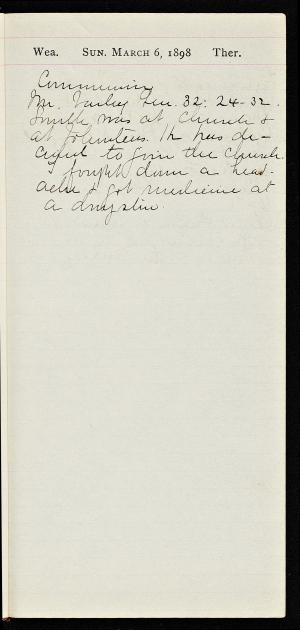 Wea. SUN. MARCH 6, 1898 Ther.
Communion
Mr. Varley Gen. 32: 24-32.
was at Church &
at Volunteers. He has de-
cided to join the Church.
I fought down a head-
ache & got medicine at
a drugstore.